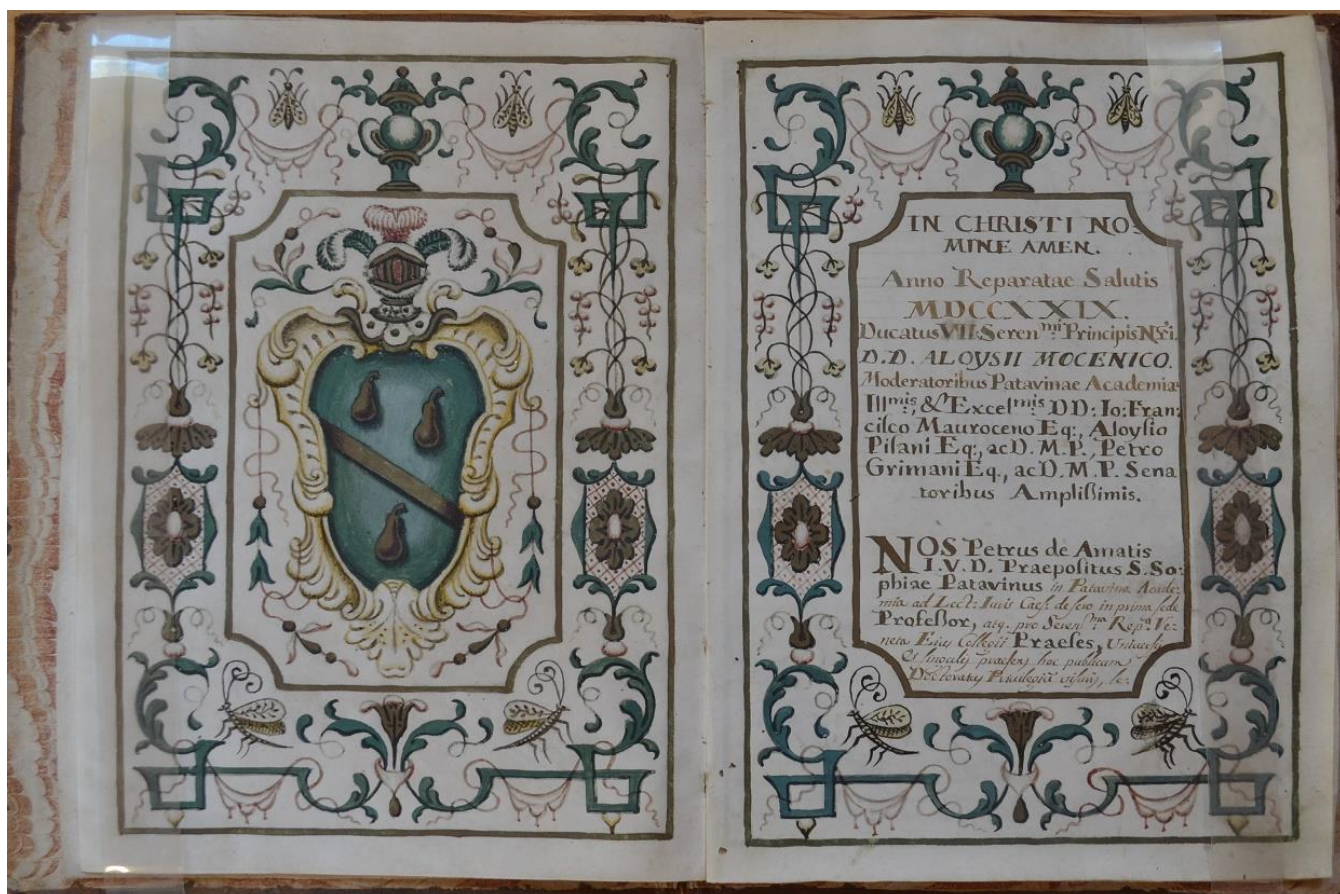 IN CHRISTI NO=
MINE AMEN.
Anno Reparatae Salutis
MDCCXXIX.
Ducatus VII. Seren.mi Principis Nri.
D.D. ALOYSII MOCENICO.
Moderatoribus Patavinae Academiae
Illmis, & Excelmis DD: Io: Fran=
cisco Mauroceno Eq:, Aloysio
Pisani Eq:, ac D. M. P., Petro
Grimani Eq., ac D. M. P. Sena
toribus Amplissimis.
NOS Petrus de Amatis
I. V. D. Praepositus S. So=
phiae Patavinus in Patavina Acade=
mia ad Lect: Iuris Caes. de sero in prima sede
Professor, atq. pro Seren.ma Rep.a Ve=
neta Eius Collegii Praeses, Universis
et singulis praesens hoc publicum
Doctoratus Privilegiu visuris, le=